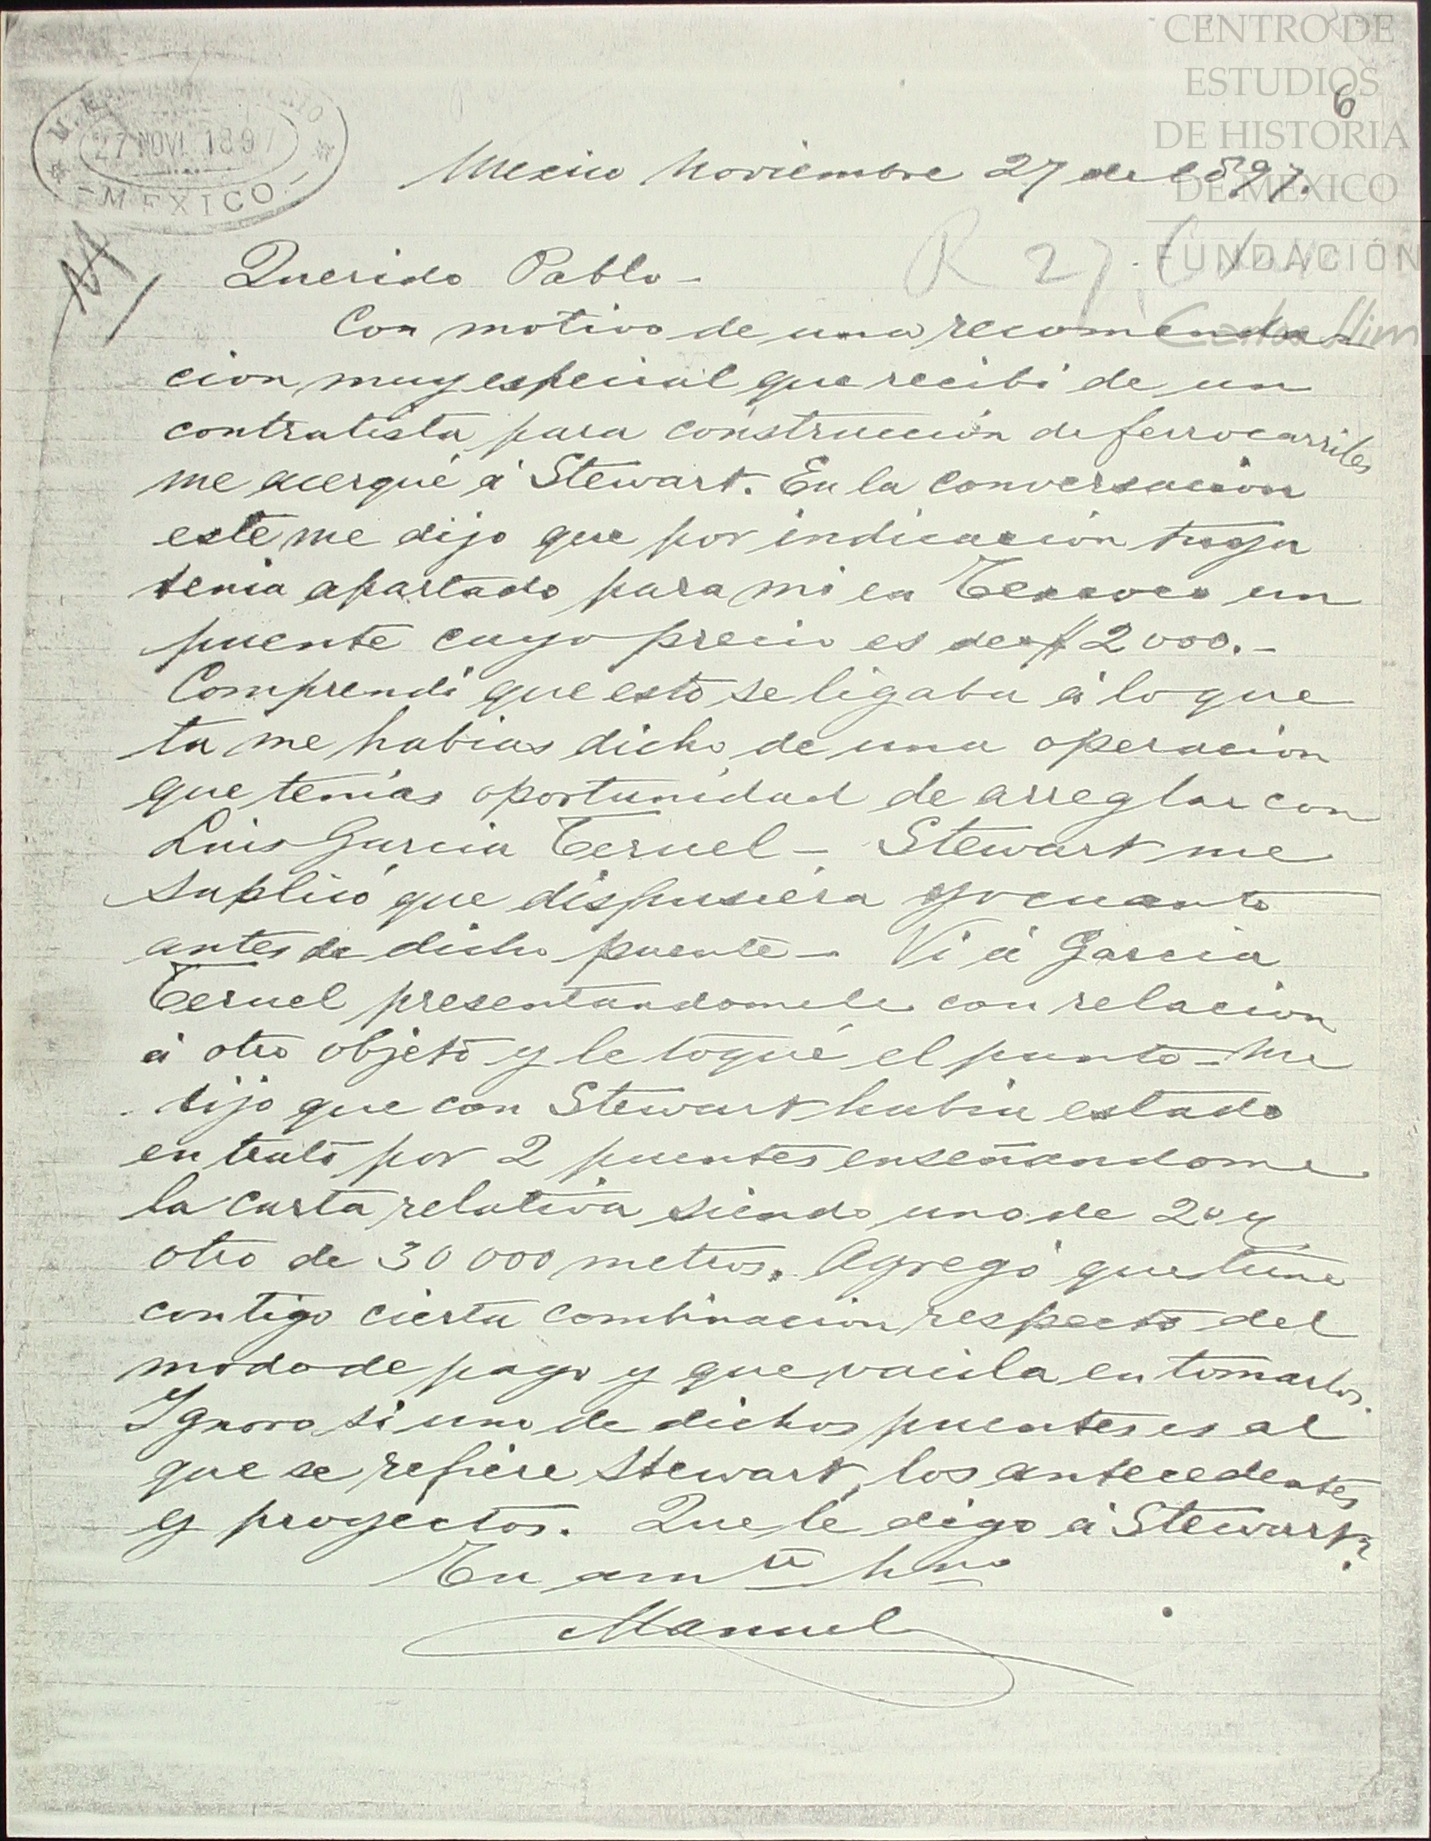 CENTRO DE
ESTUDIOS
DE HISTORIA
DE MEXICO
FUNDACIÓN
Carlos Slim
6
27 NOV. 1897
MEXICO
Mexico Noviembre 27 de 1897.
R 27
Querido Pablo -
Con motivo de una recomenda-
cion muy especial que recibi de un
contratista para construcción de ferrocarriles
me acerqué á Stewart. En la conversacion
este me dijo que por indicacion tuya
tenia apartado para mi en Texcoco un
puente cuyo precio es de $2000.-
Comprendi que esto se ligaba á lo que
tu me habias dicho de una operacion
que tenias oportunidad de arreglar con
Luis Garcia Teruel - Stewart me
suplicó que dispusiera yo cuanto
antes de dicho puente - Vi á Garcia
Teruel presentandomele con relacion
á otro objeto y le toqué el punto - Me
dijo que con Stewart habia estado
en trato por 2 puentes enseñandome
la carta relativa siendo uno de 20 y
otro de 30 000 metros. Agregó que tiene
contigo cierta combinacion respecto del
modo de pago y que vacila en tomarlos.
Ignoro si uno de dichos puentes es al
que se refiere Stewart, los antecedentes
y proyectos. Que le digo á Stewart?
Tu amte hno
Manuel